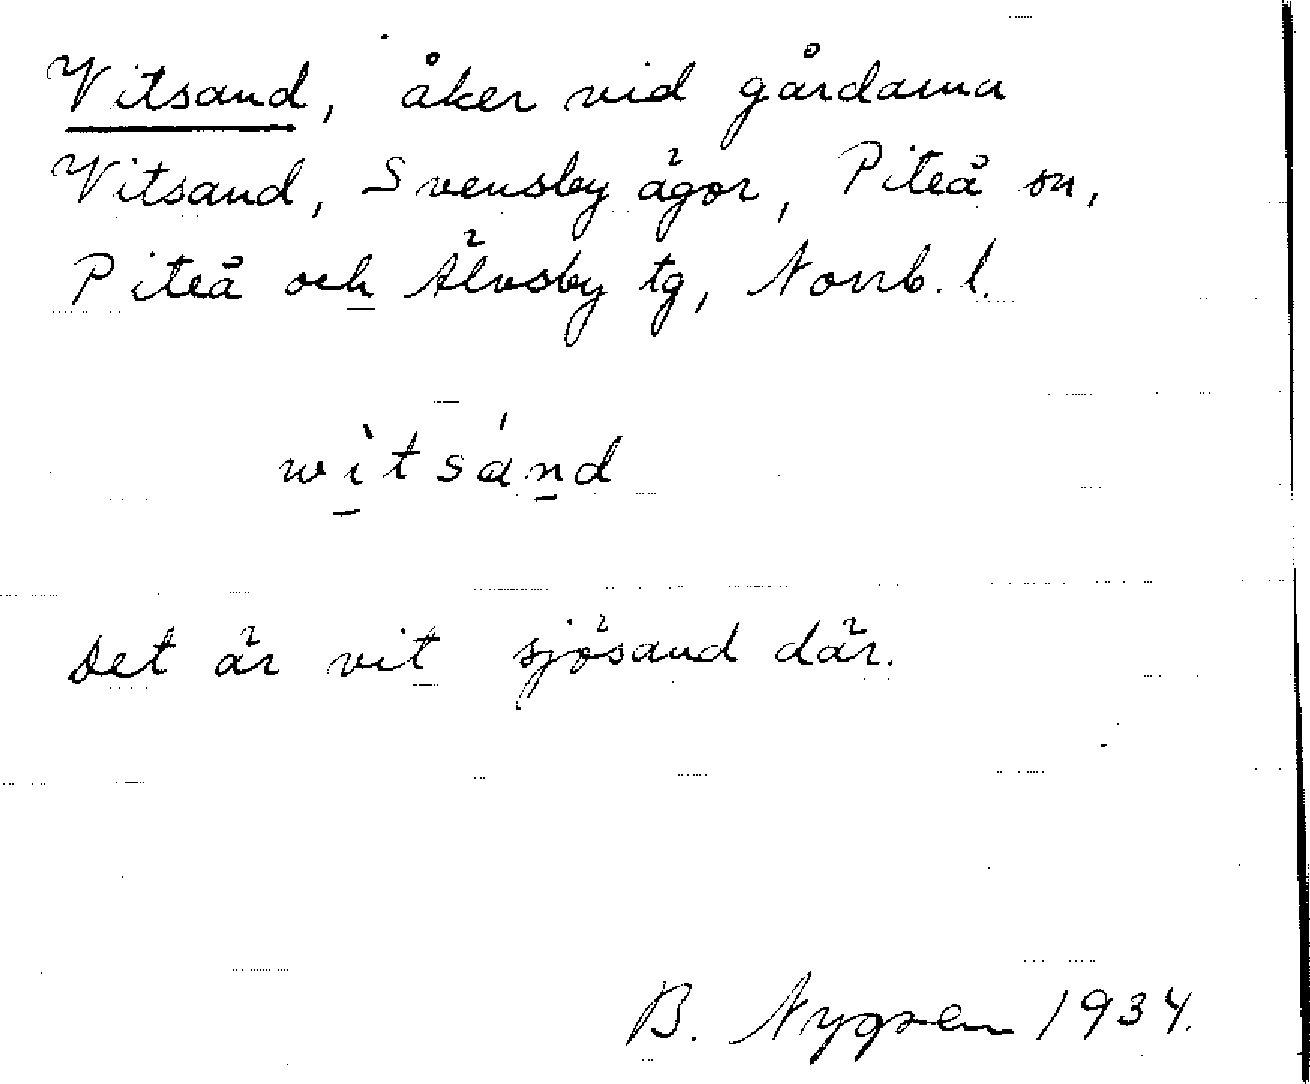 Vitsand, åker vid gårdarna
Vitsand, Svensby ägor, Piteå sn,
Piteå och Älvsby tg, Norrb. l.
wìtsánd
Det är vit sjösand där.
B. Nygren 1934.